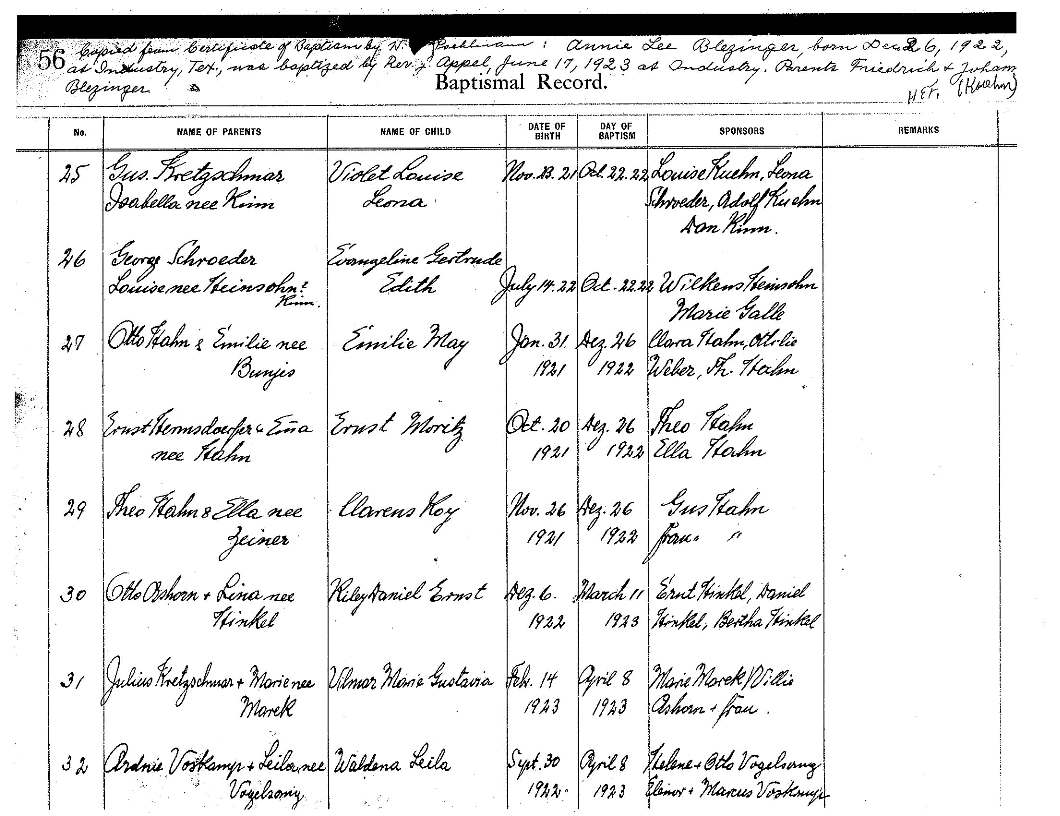 56 Copied from Certificate of Baptism by H. : Annie Lee Blezinger, born Dec 26, 1922,
at Industry, Tex., was baptized by Rev. J. Appel, June 17, 1923 at Industry. Parents Friedrich &
Blezinger
(Kuehn)
Baptismal Record.
No. NAME OF PARENTS NAME OF CHILD DATE OF BIRTH DAY OF BAPTISM SPONSORS REMARKS
25 Gus. Kretzschmar Violet Louise Nov. 23. 21 Oct. 22. 22 Louise Kuehn, Leona
Isabella nee Kinn Leona Schroeder, Adolf Kuehn
Dan Kinn.
26 George Schroeder Evangeline Gertrude
Louise nee Heinsohn Edith July 14. 22 Oct. 22. 22 Wilkens Heinsohn
Kinn. Marie Galle
27 Otto Hahn & Emilie nee Emilie May Jan. 31. Dez. 26 Clara Hahn, Ottilie
Bunjes 1921 1922 Weber, Th. Hahn
28 Ernst Hermsdoerfer & Emma Ernst Moritz Oct. 20 Dez. 26 Theo Hahn
nee Hahn 1921 1922 Ella Hahn
29 Theo Hahn & Ella nee Clarens Roy Nov. 26 Dez. 26 Gus Hahn
Zeiner 1921 1922 Frau " "
30 Otto Ashorn + Lina nee Riley Daniel Ernst Dez. 6. March 11 Ernst Hinkel, Daniel
Hinkel 1922 1923 Hinkel, Bertha Hinkel
31 Julius Kretzschmar + Marie nee Vilmar Marie Gustavia Feb. 14 April 8 Marie Marek, Willie
Marek 1923 1923 Ashorn + Frau.
32 Ardnie Voskamp + Leila nee Waldena Leila Sept. 30 April 8 Helene + Otto Vogelsang
Vogelsang 1922. 1923 Elenor + Marcus Voskamp